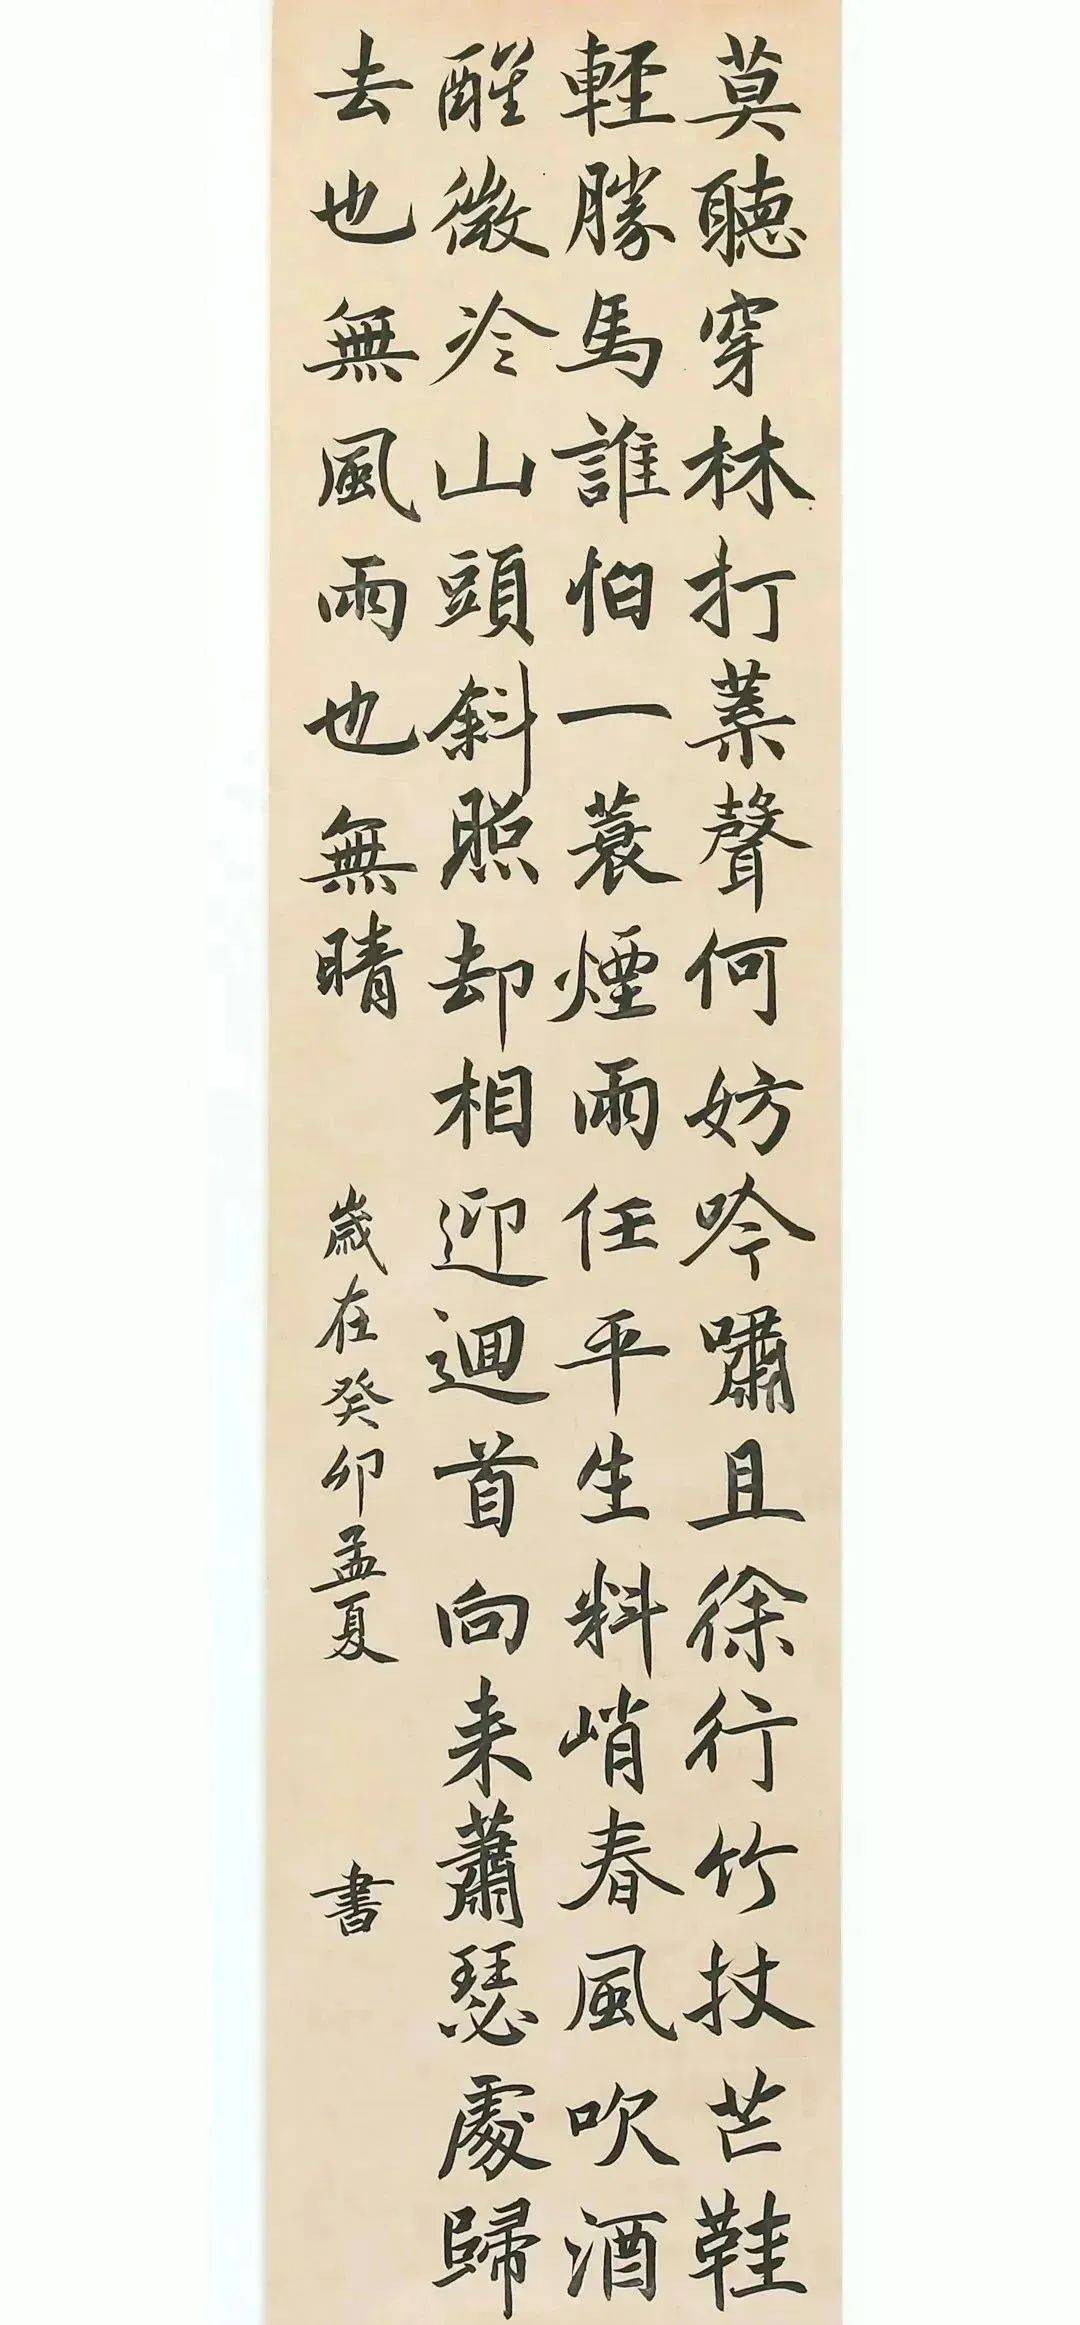 莫聽穿林打葉聲何妨吟嘯且徐行竹杖芒鞋
輕勝馬誰怕一蓑煙雨任平生料峭春風吹酒
醒微冷山頭斜照却相迎迴首向来蕭瑟處歸
去也無風雨也無晴
歲在癸卯孟夏 書